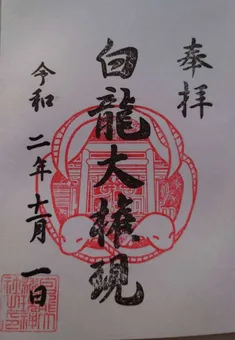 奉拝
白龍大権現
令和二年月一日